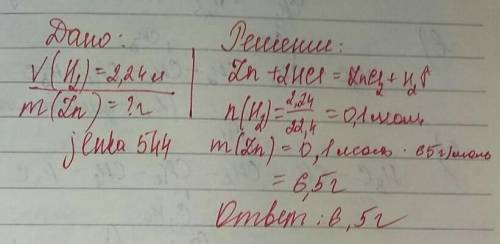 Дано:
V(H₂)=2,24л
m(Zn)=?г
jenka 544
Решение:
Zn+2HCl=ZnCl₂+H₂↑
n(H₂)=2,24/22,4=0,1моль
m(Zn)=0,1моль·65г/моль
=6,5г
Ответ: 6,5г